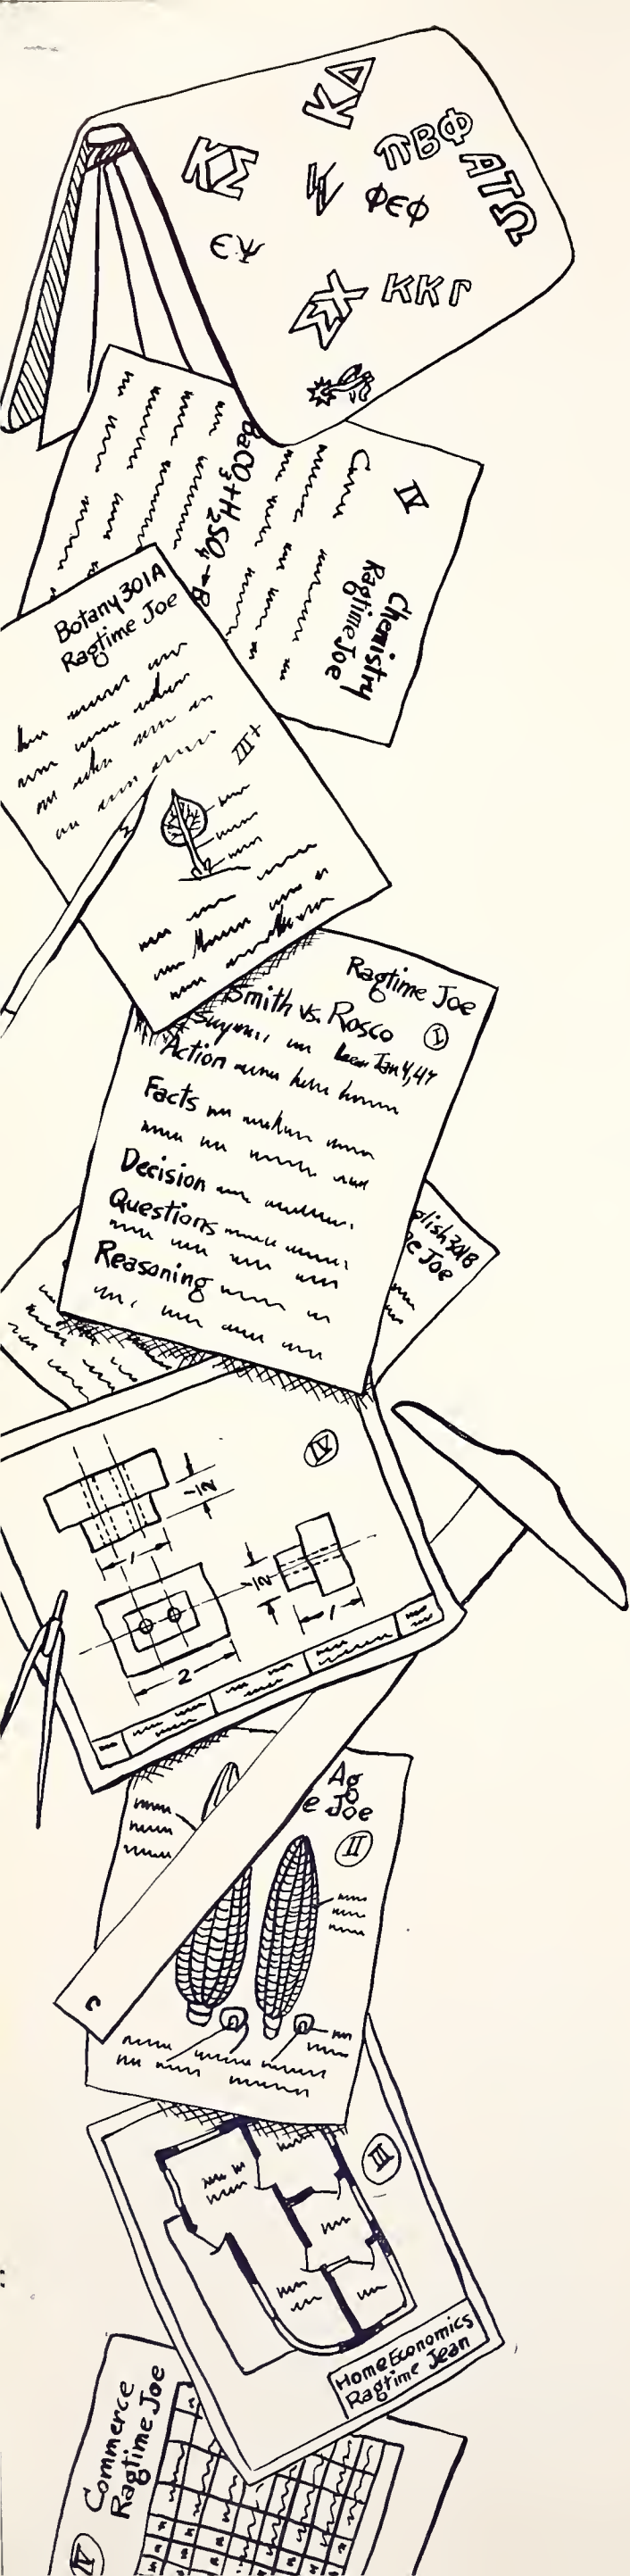 ΚΔ
ΚΣ
ΠΒΦ
ΑΤΩ
ΦΕΦ
ΕΨ
ΣΧ
ΚΚΓ
IV
Chemistry
Ragtime Joe
BaCO3+H2SO4→B
Botany 301A
Ragtime Joe
III+
Ragtime Joe
Smith vs. Rosco
I
Jan 4, 47
Action
Facts
Decision
Questions
Reasoning
lish 301B
e Joe
IV
1/2
1
1/2
1
2
Ag
e Joe
II
III
Home Economics
Ragtime Jean
Commerce
Ragtime Joe
IV